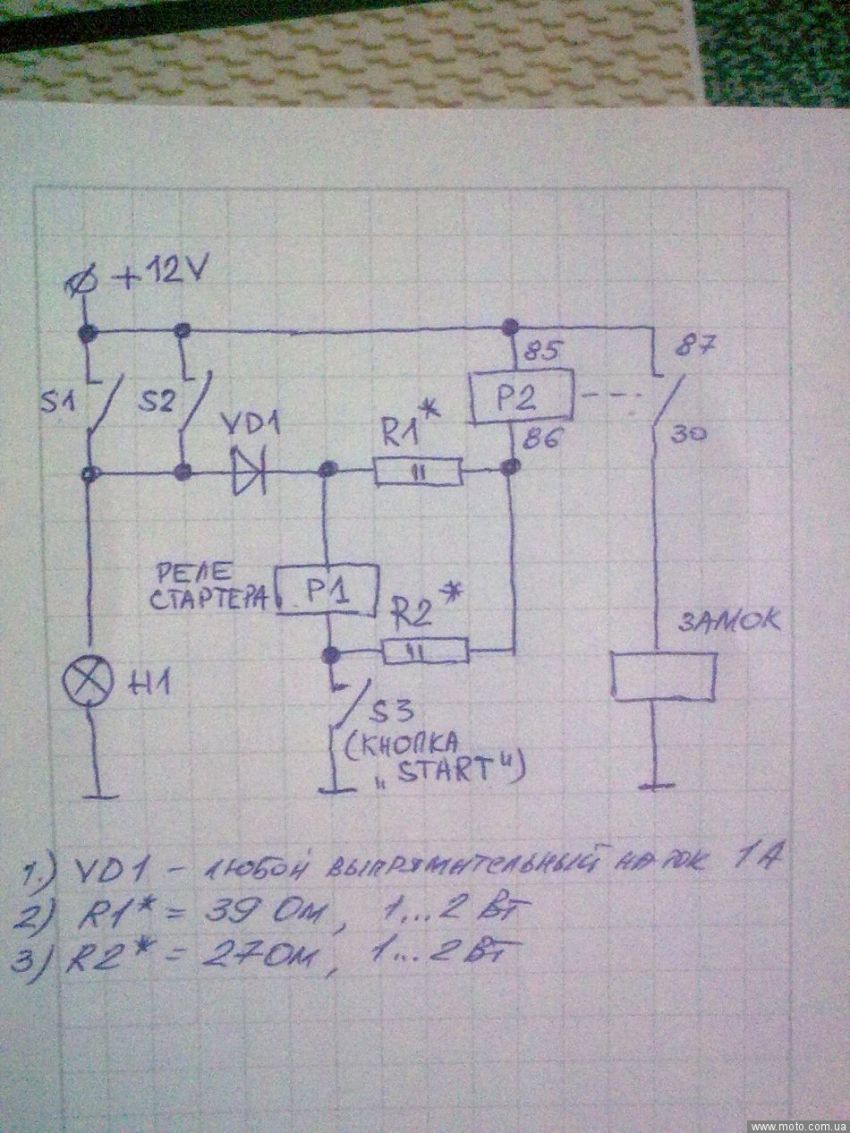 +12V
S1
S2
VD1
R1*
85
P2
86
87
30
РЕЛЕ
СТАРТЕРА
P1
R2*
ЗАМОК
H1
S3
(КНОПКА
„START“)
1.) VD1 - ЛЮБОЙ ВЫПРЯМИТЕЛЬНЫЙ НА ТОК 1А
2) R1* = 39 Ом, 1...2 Вт
3) R2* = 27 Ом, 1...2 Вт
www.moto.com.ua